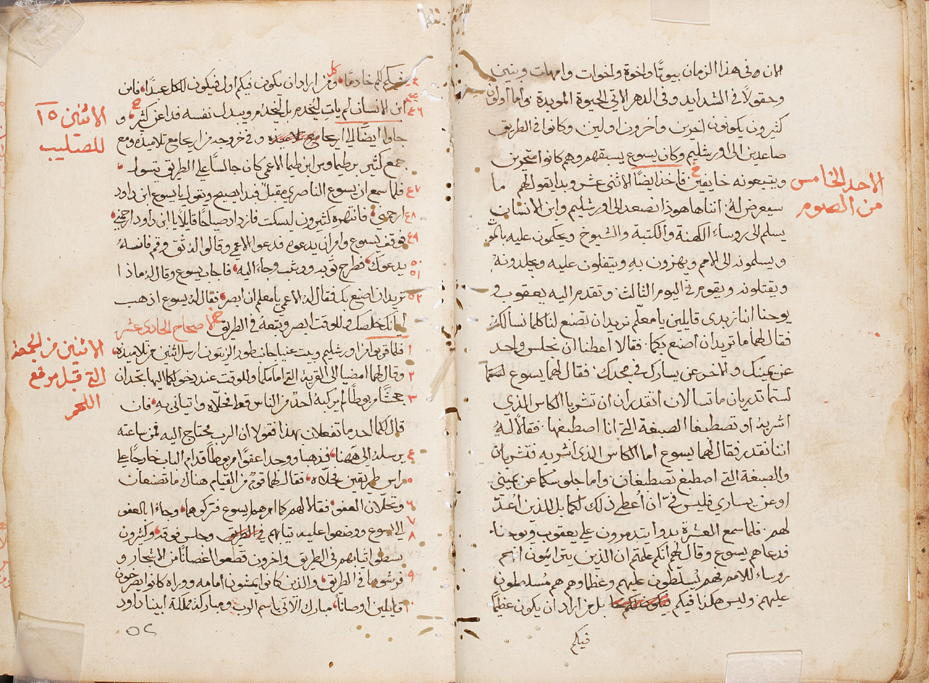 الان وفي هذا الزمان بيوتا واخوة واخوات وامهات وبنين
وحقولا في الشدايد وفي الدهر الاتي الحيوة الموبدة واما اولون
كثيرون يكونون اخرين واخرون اولين وكانوا في الطريق
صاعدين الى اورشليم وكان يسوع يسبقهم وهم كانوا متحيرين
ويتبعونه خايفين فاخذ ايضا الاثني عشر وبدا يقول لهم ما
سيعرض له اننا ها هوذا نصعد الى اورشليم وابن الانسان
يسلم الى روساء الكهنة والكتبة والشيوخ ويحكمون عليه بالموت
ويسلمونه الى الامم ويهزون به ويتفلون عليه ويجلدونه
ويقتلونه ويقوم في اليوم الثالث وتقدم اليه يعقوب و
يوحنا ابنا زبدى قايلين يا معلم نريد ان تصنع لنا كلما نسالك
فقال لهما ما تريدان اصنع بكما فقالا اعطنا ان نجلس واحد
عن يمينك والاخر عن يسارك في مجدك فقال لهما يسوع
لستما تدريان ما تسالان اتقدران ان تشربا الكاس الذي
اشربه او تصطبغا الصبغة التي انا اصطبغها فقالا له
اننا نقدر فقال لهما يسوع اما الكاس الذي اشربه فتشربان
والصبغة التي اصطبغ تصطبغان واما جلوسكما عن يميني
او عن يساري فليس لي ان اعطي ذلك لكما بل للذين اعد
لهم فلما سمع العشرة بدوا يتذمرون على يعقوب ويوحنا
فدعاهم يسوع وقال لهم انكم علمتم ان الذين يترايسون انهم
روساء للامم فهم يتسلطون عليهم وعظماوهم هم مسلطون
عليهم وليس هكذا فيكم بل من اراد ان يكون عظيما
فيكم
الاحد الخامس
من الصوم
فيكم لكم خادما ومن اراد ان يكون فيكم اول فيكون للكل عبدا فان
ابن الانسان لم يات ليخدم بل ليخدم ويبذل نفسه فدا عن كثير و
جاوا ايضا الى اريحا وفي خروجه من اريحا مع تلاميذه ومع
جمع كثير برطيما وس ابن طيما الاعمى كان جالسا على الطريق يتسول
فلما سمع ان يسوع الناصري مقبل فبدا يصيح ويقول يا يسوع ابن داود
ارحمني فانتهره كثيرون ليسكت فازداد صياحا قايلا يا ابن داود ارحمني
فوقف يسوع وامر ان يدعوه فدعوا الاعمى وقالوا له ثق وقم فانه
يدعوك فطرح ثوبه ووثب وجا اليه فاجاب يسوع وقال له ماذا
تريد ان اصنع بك فقال له الاعمى يا معلم ان ابصر فقال له يسوع اذهب
ايمانك خلصك وللوقت ابصر وتبعه في الطريق الاصحاح الحادي عشر
فلما قربوا من اورشليم وبيت عنيا جانب طور الزيتون ارسل اثنين من تلاميذه
وقال لهما امضيا الى القرية التي امامكما وللوقت عند دخولكما اليها تجدان
جحشا مربوطا لم يركبه احد من الناس قط فحلاه واتياني به فان
قال لكما احد ما تفعلان بهذا فقولا ان الرب محتاج اليه فمن ساعته
يرسله الى ههنا فذهبا ووجدا عفوا مربوطا قدام الباب خارجا على
راس طريقين يحلانه فقال لهما قوم من القيام هناك ما تصنعان
وتحلان العفو فقالا لهم كما امرهم يسوع فتركوهما وجاءا بالعفو
الى يسوع ووضعوا عليه ثيابهم وجلس فوقه وكثيرون
بسطوا ثيابهم في الطريق واخرون قطعوا اغصانا من الاشجار و
فرشوها في الطريق والذين كانوا يمشون امامه ووراه كانوا يصرخون
قايلين اوصانا مبارك الاتي باسم الرب ومباركة مملكة ابينا داود
الاثنين ١٥
للصليب
الاثنين من الجمعة
التي قبل مرفع
اللحم